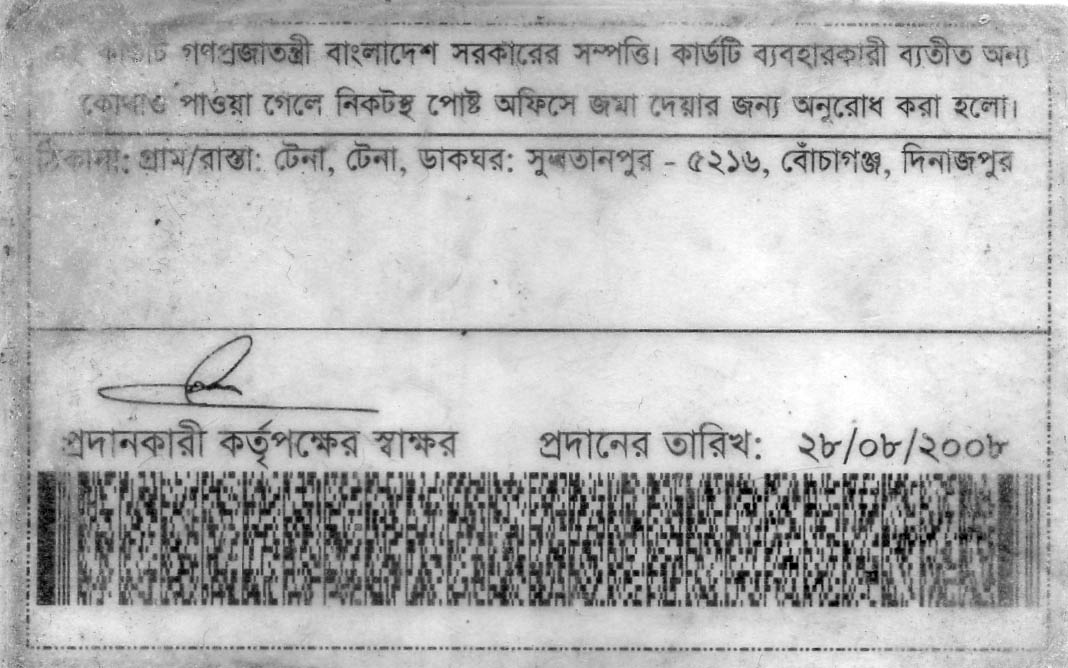 এই কার্ডটি গণপ্রজাতন্ত্রী বাংলাদেশ সরকারের সম্পত্তি। কার্ডটি ব্যবহারকারী ব্যতীত অন্য
কোথাও পাওয়া গেলে নিকটস্থ পোষ্ট অফিসে জমা দেয়ার জন্য অনুরোধ করা হলো।
ঠিকানা: গ্রাম/রাস্তা: টেনা, টেনা, ডাকঘর: সুলতানপুর - ৫২১৬, বোঁচাগঞ্জ, দিনাজপুর
প্রদানকারী কর্তৃপক্ষের স্বাক্ষর প্রদানের তারিখ: ২৮/০৮/২০০৮